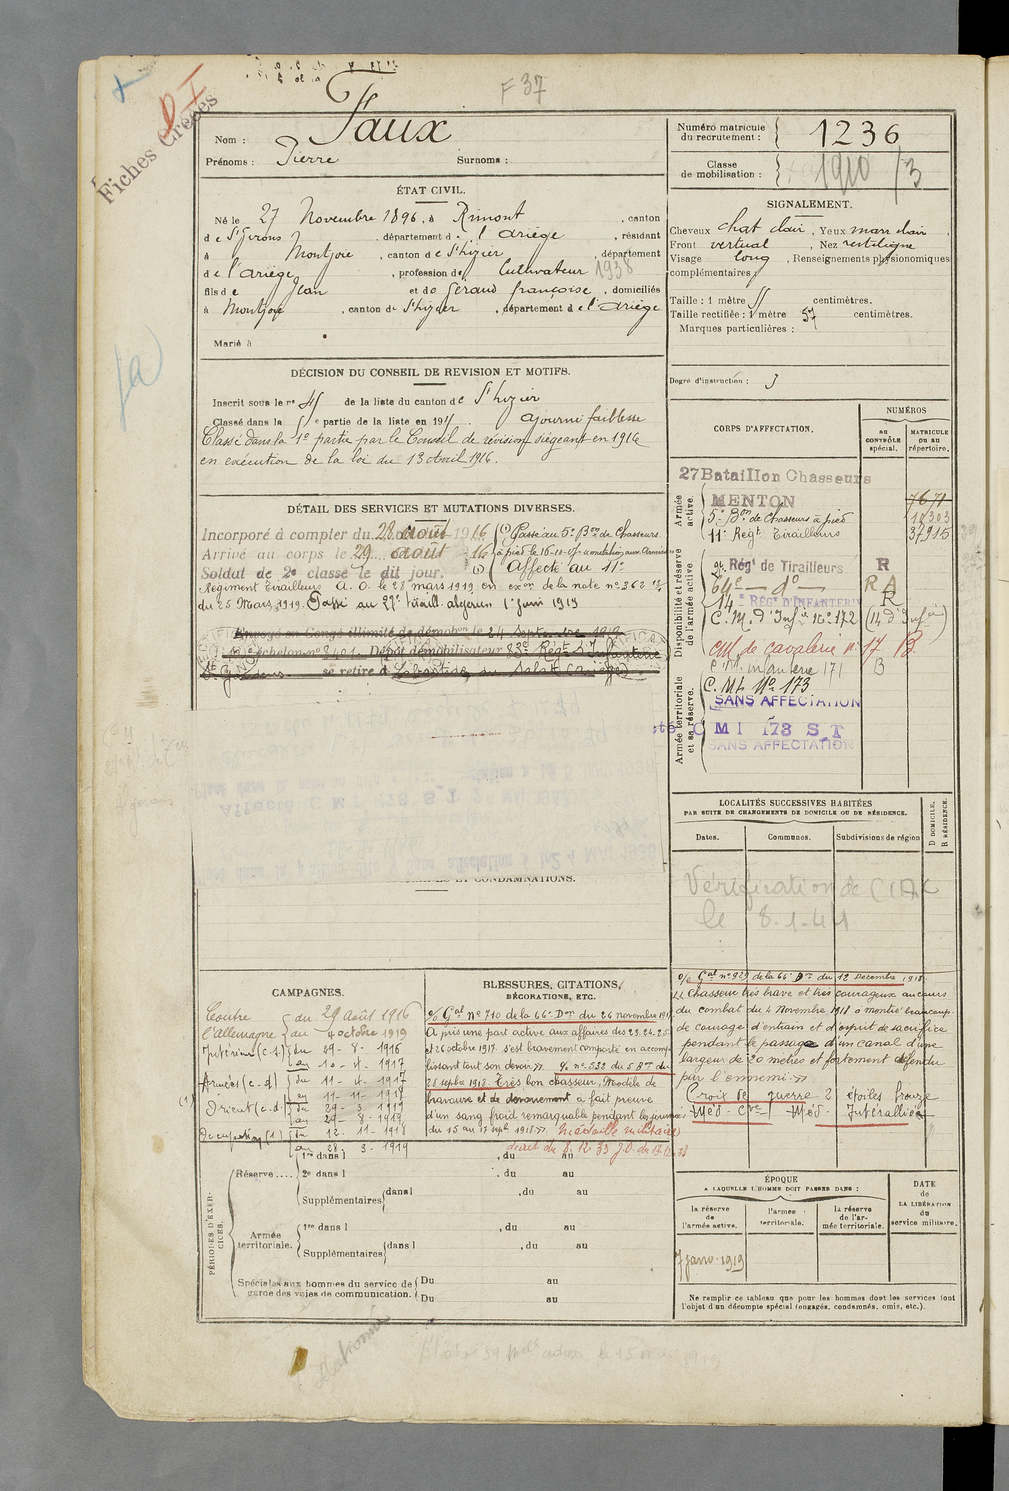 F 37
D I
Fiches Créées
Nom : Faux
Prénoms : Pierre Surnoms :
Numéro matricule du recrutement : 1236
Classe de mobilisation : 1910 /3
ÉTAT CIVIL.
Né le 27 Novembre 1896, à Rimont, canton
de St Girons, département de l'Ariège, résidant
à Montjoie, canton de St Lizier, département
de l'Ariège, profession de Cultivateur 1938
fils de Jean et de Géraud françoise, domiciliés
à Montjoie, canton de St Lizier, département de l'Ariège
Marié à
SIGNALEMENT.
Cheveux chat clair, Yeux marr clair,
Front vertical, Nez rectiligne
Visage long, Renseignements physionomiques
complémentaires :
Taille : 1 mètre 55 centimètres.
Taille rectifiée : 1 mètre 57 centimètres.
Marques particulières :
Degré d'instruction : 3
DÉCISION DU CONSEIL DE REVISION ET MOTIFS.
Inscrit sous le no 45 de la liste du canton de St Lizier
Classé dans la 5e partie de la liste en 1915. Ajourné faiblesse
Classé dans la 1e partie par le Conseil de révision siégeant en 1916
en exécution de la loi du 13 Avril 1916.
DÉTAIL DES SERVICES ET MUTATIONS DIVERSES.
Incorporé à compter du 28 Août 1916 (1) Passé au 5e Bon de Chasseurs
Arrivé au corps le 29 août 16 à pied le 16-11-17
Soldat de 2e classe le dit jour. (1) Affecté au 11e
Régiment Tirailleurs A. O. le 28 mars 1919 en exon de la note no 362
du 25 Mars 1919. Passé au 27e tiraill. algérien 1er juin 1919
Envoyé en Congé illimité de démobon le 24 septembre 1919
échelon no Dépôt démobilisateur 83e Régt d'Infanterie
St Gaudens se retire à Labastide du Salat (Ariège)
CONDAMNATIONS.
CORPS D'AFFECTATION.
NUMÉROS
AU CONTRÔLE spécial.
MATRICULE OU AU répertoire.
Armée active.
27 Bataillon Chasseurs
MENTON 7671
5e Bon de Chasseurs à pied 10303
11e Regt Tirailleurs 37915
Disponibilité et réserve de l'armée active.
Régt de Tirailleurs R
64e do R A
14e RÉGt D'INFANTERIE R
C. M. d'Infie no 172 (14 d'Infie)
CM de cavalerie no 17 B
C. M. infanterie 171 B
Armée territoriale et sa réserve.
C. M I. No 173
SANS AFFECTATION
C M I 173 S T
SANS AFFECTATION
LOCALITÉS SUCCESSIVES HABITÉES
PAR SUITE DE CHANGEMENTS DE DOMICILE OU DE RÉSIDENCE.
Dates. Communes. Subdivisions de région
D DOMICILE. R RÉSIDENCE.
Vérification de
le 8.1.41
CAMPAGNES.
Contre du 29 Août 1916
l'Allemagne au 4 octobre 1919
Intérieur (c.s.) du 29 - 8 - 1916
au 10 - 4 - 1917
Armées (c-d) du 11 - 4 - 1917
au 11 - 11 - 1918
Orient (c.d.) du 29 - 3 - 1919
au 29 - 8 - 1919
Occupation (1) du 12 - 11 - 1918
au 28 - 3 - 1919
BLESSURES, CITATIONS,
DÉCORATIONS, ETC.
o/o Gal no 710 de la 66e Don du 26 novembre 1917
A pris une part active aux affaires des 23. 24. 25.
et 26 octobre 1917. s'est bravement comporté en accom-
plissant tout son devoir ». o/o no 533 du 5e Bon du
25 septbre 1918. Très bon chasseur, Modèle de
bravoure et de dévouement a fait preuve
d'un sang froid remarquable pendant les journées
du 15 au 17 septe 1918 ». Médaille militaire
décret du 8. 12. 33 J.O. du
o/o Gal no 929 de la 66e Don du 12 Décembre 1918.
« Chasseur très brave et très courageux au cours
du combat du 4 Novembre 1918 a montré beaucoup
de courage d'entrain et d'esprit de sacrifice
pendant le passage d'un canal d'une
largeur de 20 mètres et fortement défendu
par l'ennemi »
Croix de guerre 2 étoiles bronze
Med. Cve Med. Interalliée
PÉRIODES D'EXERCICES.
Réserve.... 1re dans l , du au
2e dans l , du au
Supplémentaires dans l , du au
Armée territoriale. 1re dans l , du au
Supplémentaires dans l , du au
Spéciales aux hommes du service de garde des voies de communication. Du au
Du au
ÉPOQUE
A LAQUELLE L'HOMME DOIT PASSER DANS :
la réserve de l'armée active.
l'armée territoriale.
la réserve de l'armée territoriale.
DATE de LA LIBÉRATION du service militaire.
7 janv. 1919
Ne remplir ce tableau que pour les hommes dont les services font
l'objet d'un décompte spécial (engagés, condamnés, omis, etc.).